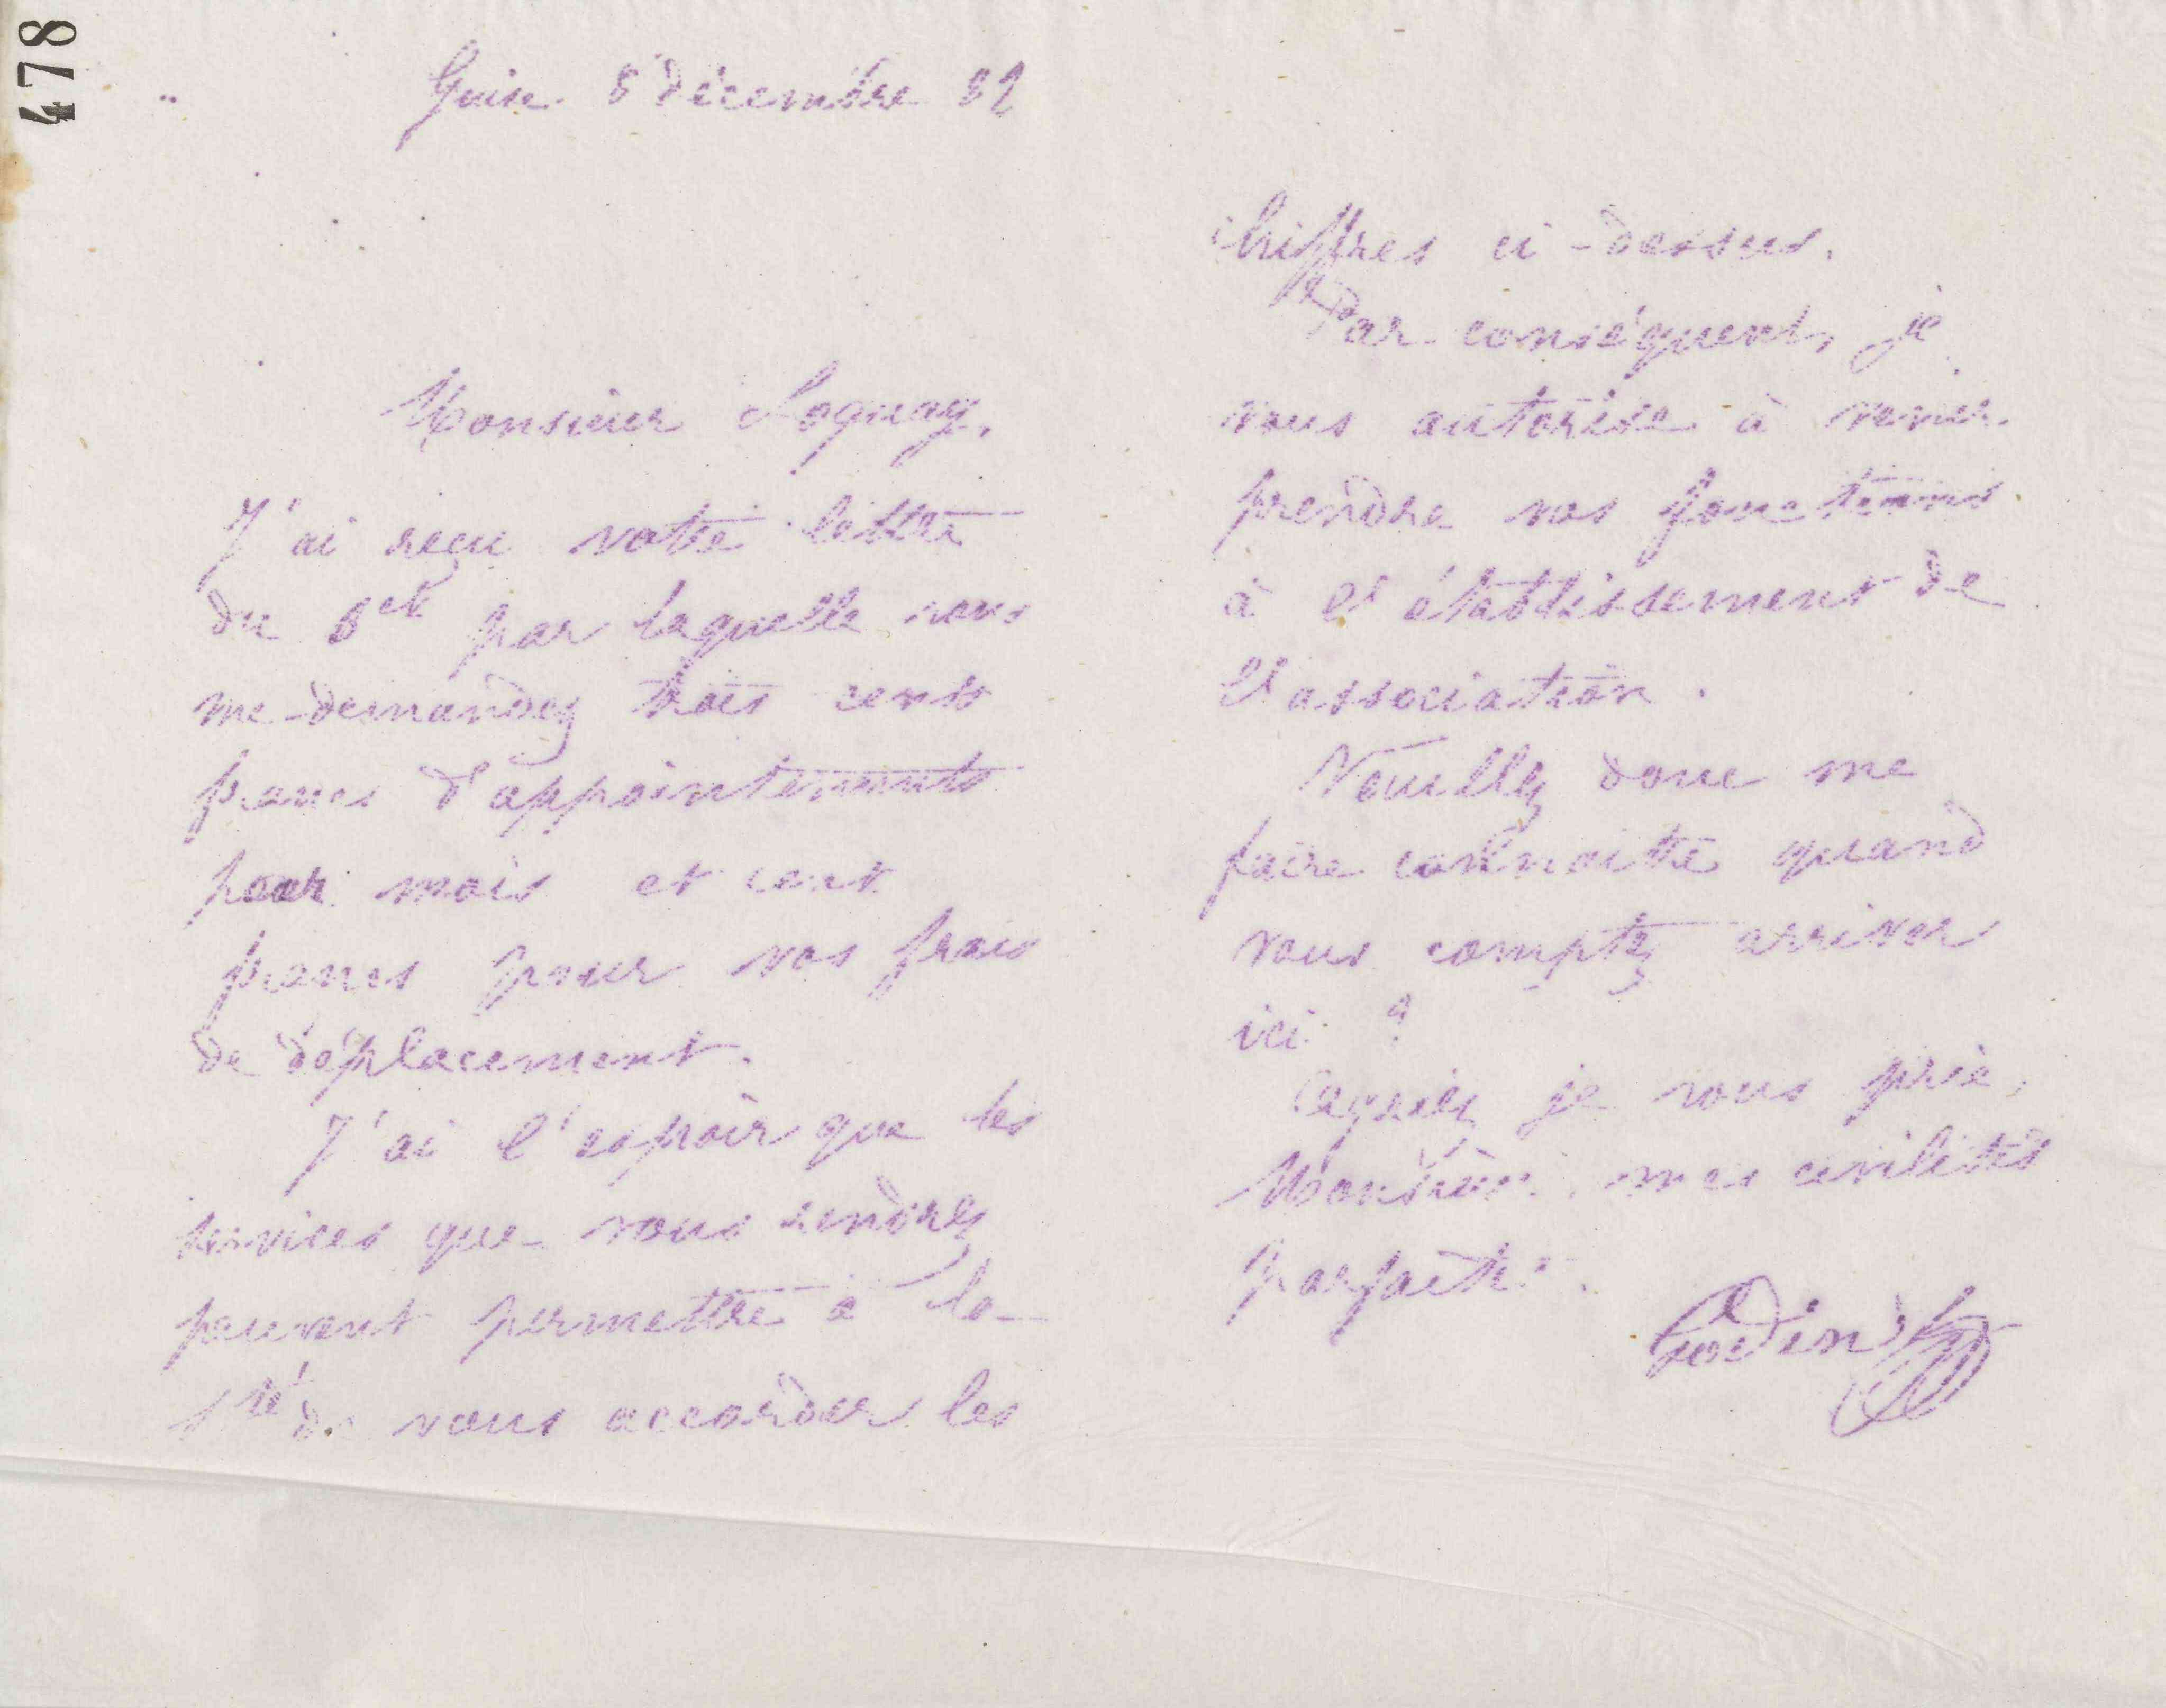 478
Guise 8 décembre 82
Monsieur Lognay,
J'ai reçu votre lettre
du 6 ct par laquelle vous
me demandez trois cents
francs d'appointements
par mois et cent
francs pour vos frais
de déplacement.
J'ai l'espoir que les
services que vous rendrez
peuvent permettre à la
Sté de vous accorder les
chiffres ci-dessus.
Par conséquent, je
vous autorise à venir
prendre vos fonctions
à l'établissement de
l'association.
Veuillez donc me
faire connaître quand
vous comptez arriver
ici ?
Agréez je vous prie,
Monsieur, mes civilités
parfaites.
Godin